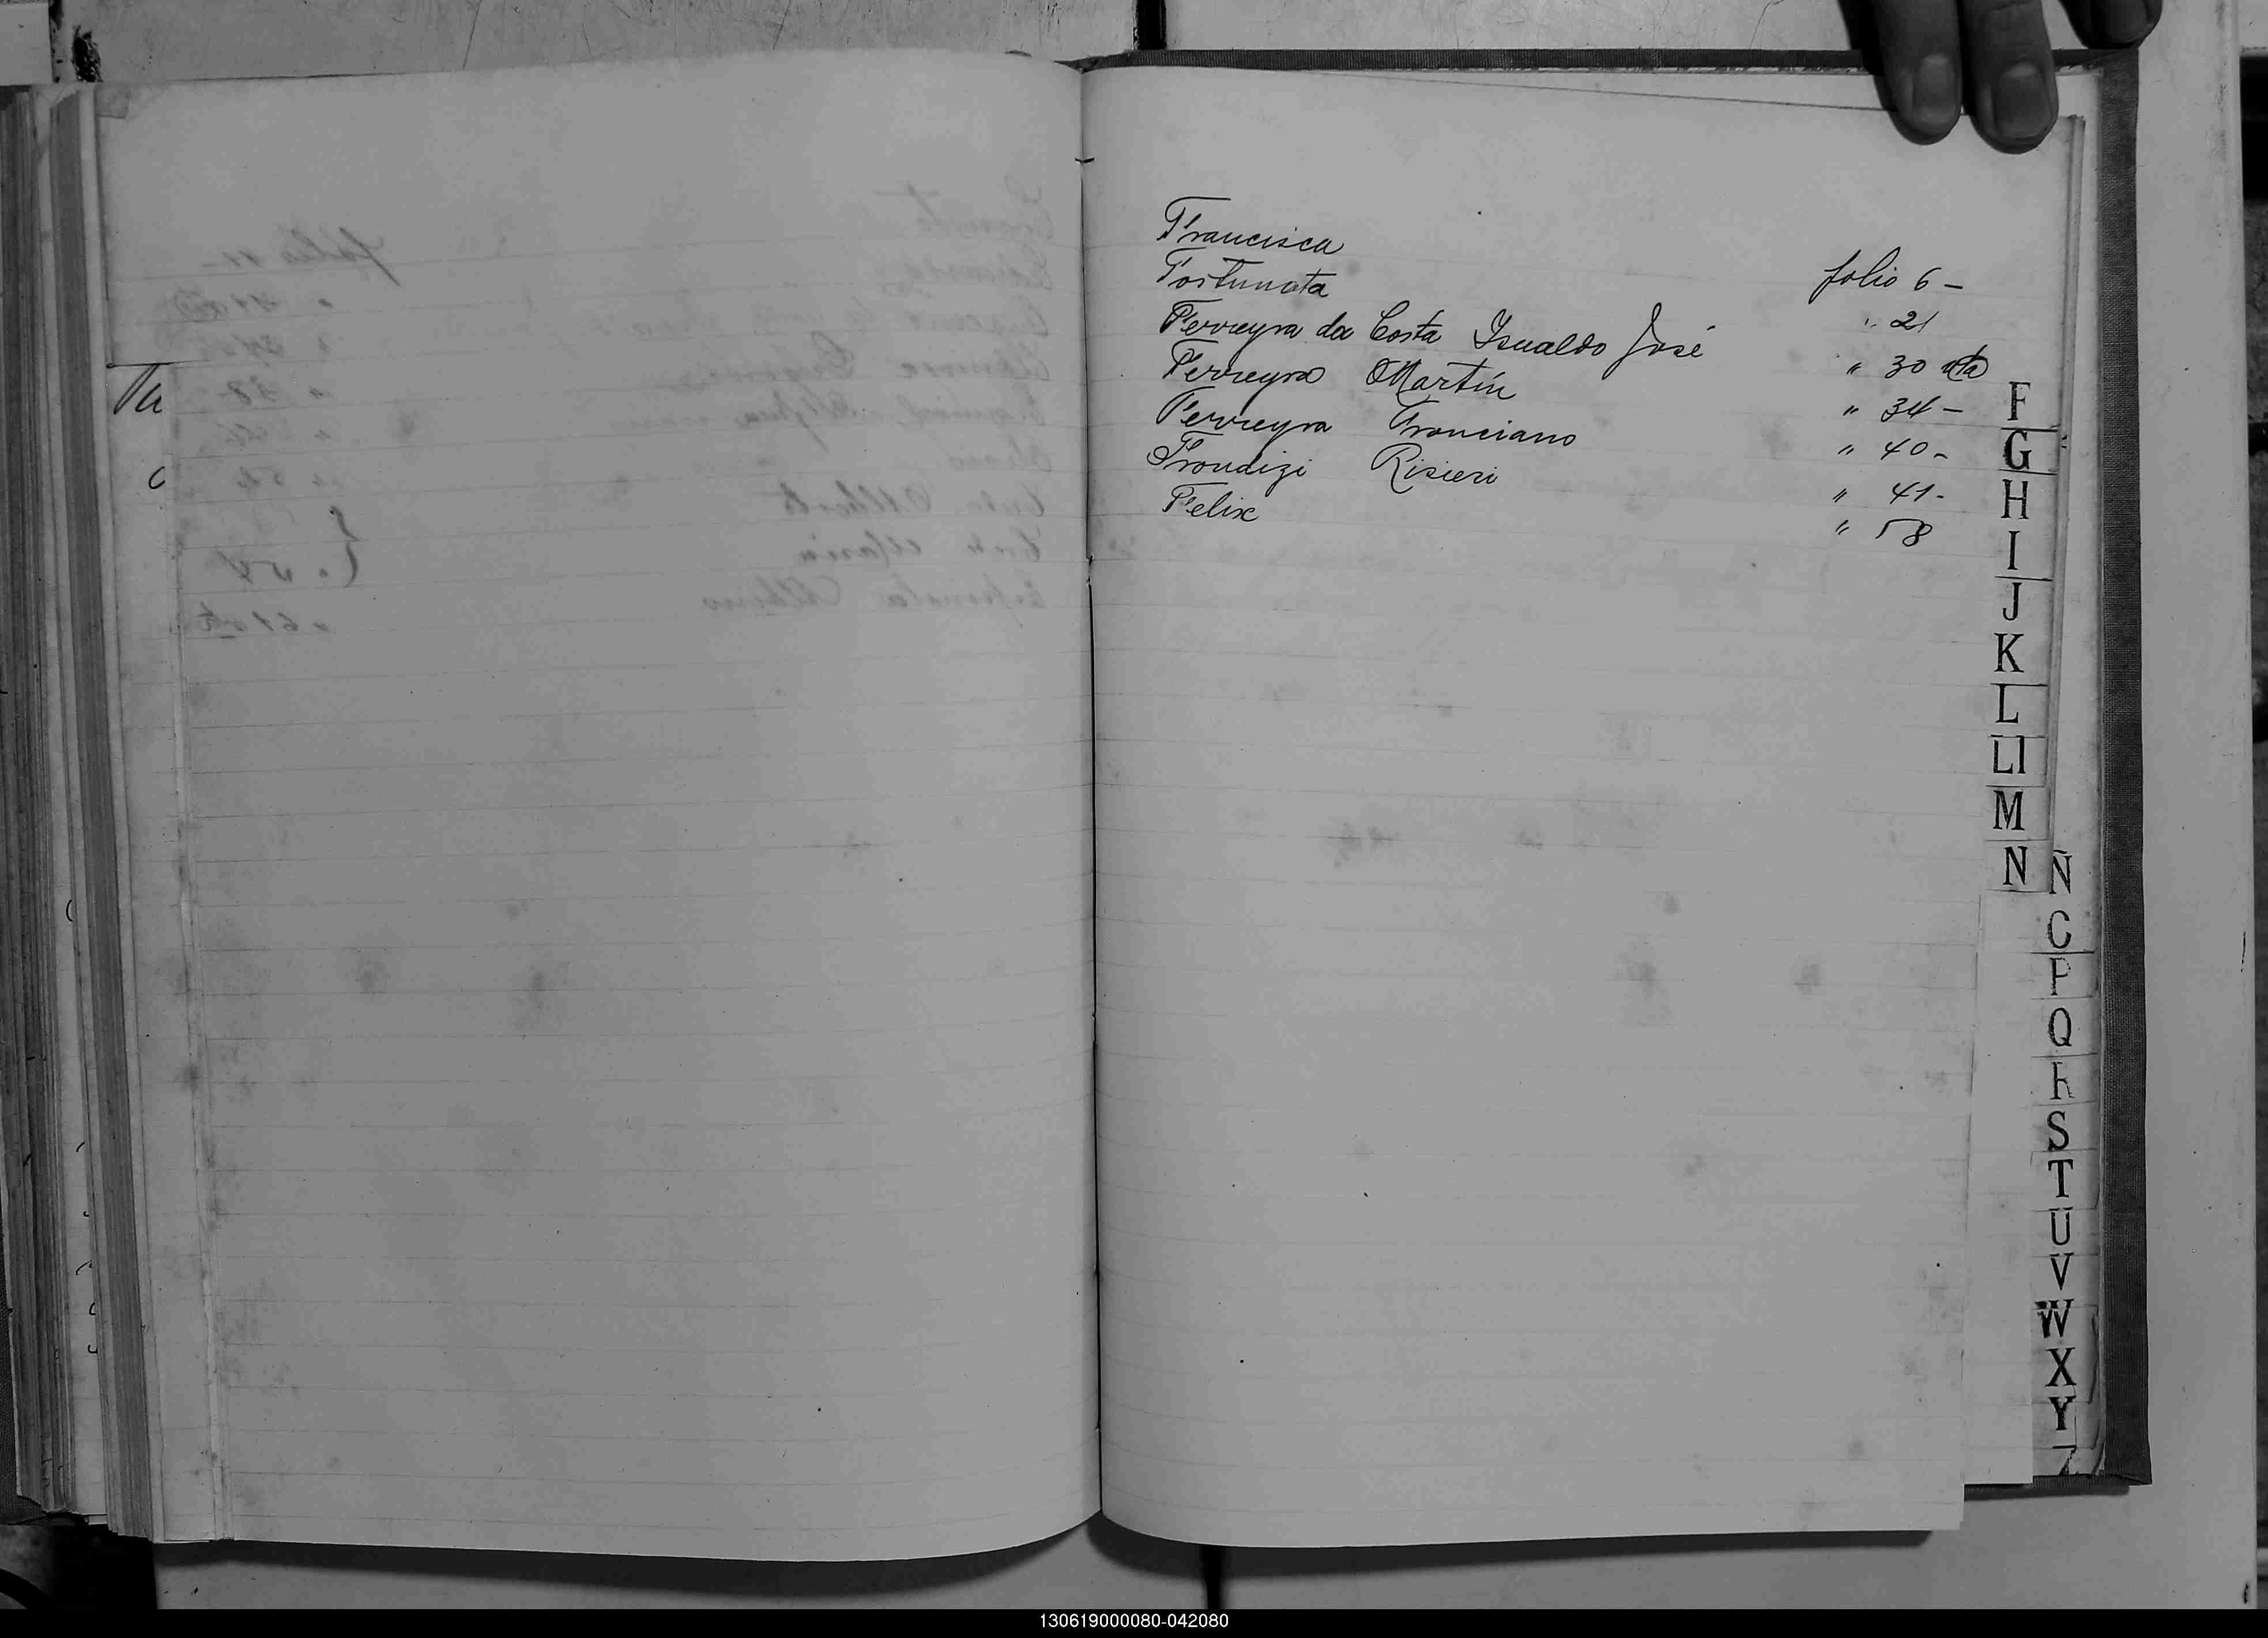 Francisca folio 6 -
Fortunata " 21
Ferreyra da Costa Isualdo José " 30 vta
Ferreyra Martín " 34 -
Ferreyra Franciano " 40 -
Frondizi Risieri " 41 -
Felix " 58
F
G
H
I
J
K
L
Ll
M
N
Ñ
O
P
Q
R
S
T
U
V
W
X
Y
Z
130619000080-042080